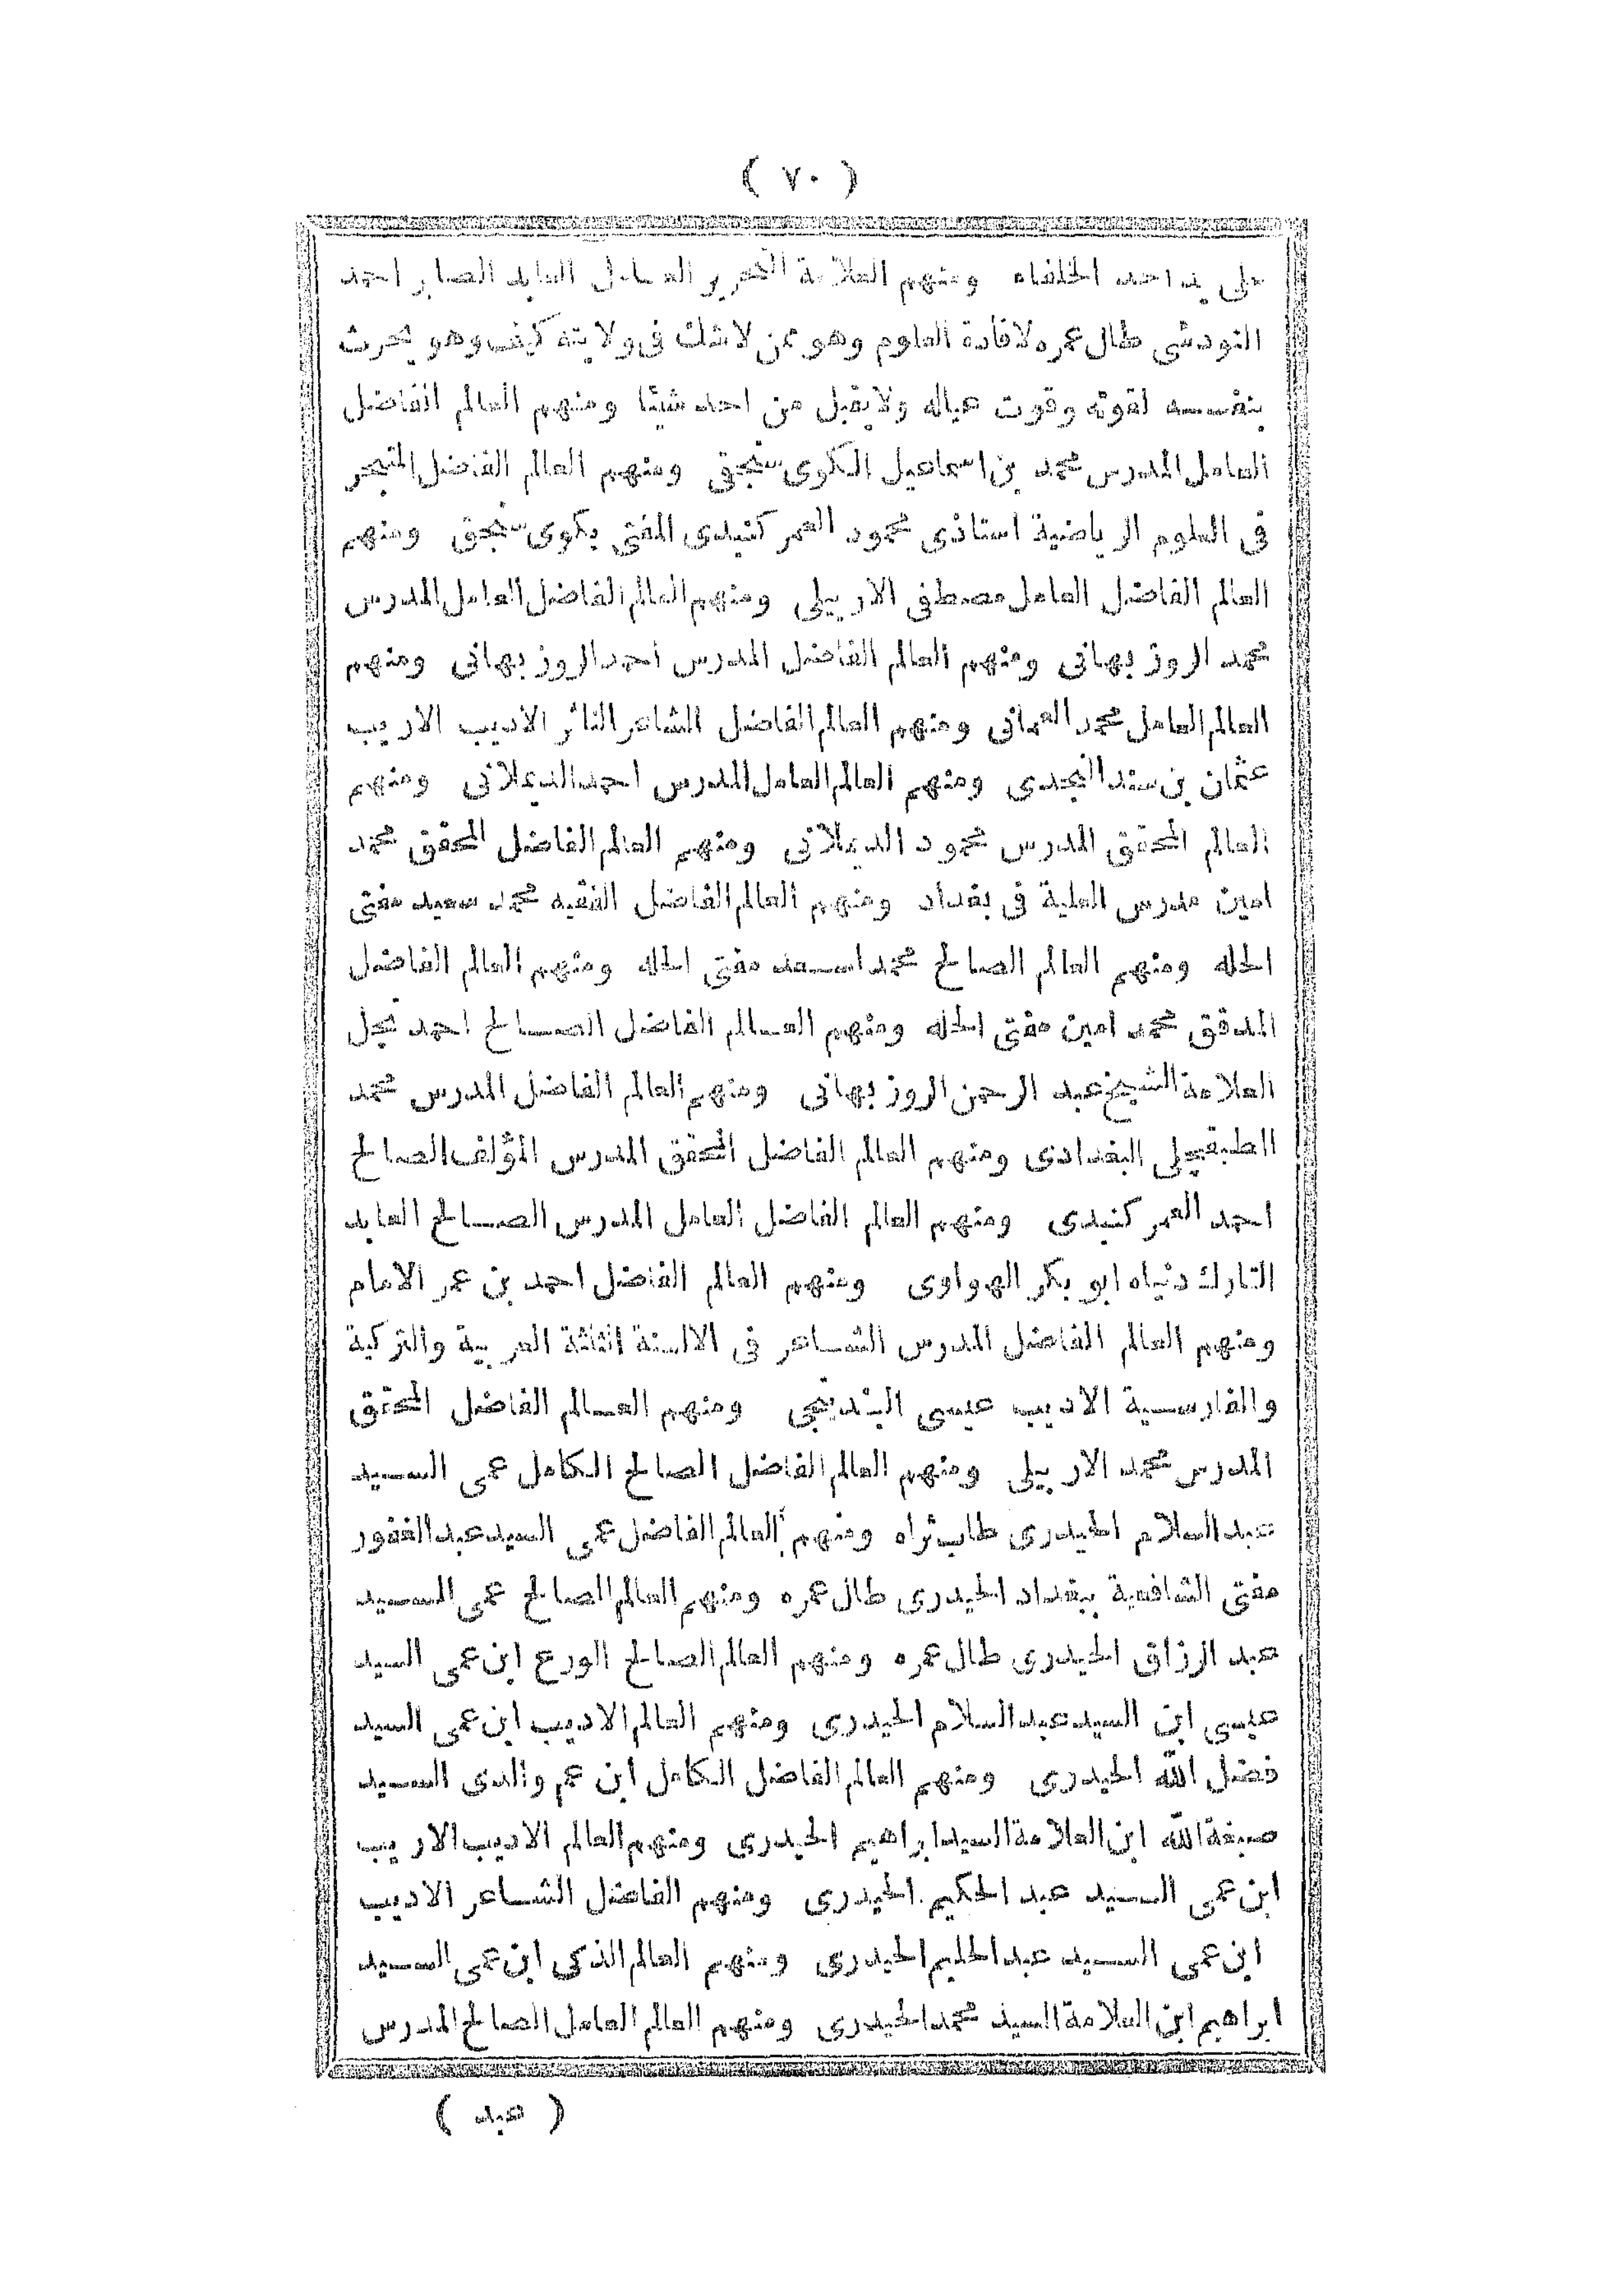 ( ٧٠ )
على يد احد الخلفاء ومنهم العلامة النحرير العامل العابد الصابر احمد
النودشى طال عمره لافادة العلوم وهو ممن لاشك فى ولايته كيف وهو يحرث
بنفسه لقوته وقوت عياله ولايقبل من احد شيئا ومنهم العالم الفاضل
العامل المدرس محمد بن اسماعيل الكوى سنجقى ومنهم العالم الفاضل المتبحر
فى العلوم الرياضية استاذى محمود العمر كنبدى المفتى بكوى سنجق ومنهم
العالم الفاضل العامل مصطفى الاربيلى ومنهم العالم الفاضل العامل المدرس
محمد الروزبهانى ومنهم العالم الفاضل المدرس احمد الروزبهانى ومنهم
العالم العامل محمد العمانى ومنهم العالم الفاضل الشاعر الناثر الاديب الاريب
عثمان بن سند النجدى ومنهم العالم العامل المدرس احمد الديملانى ومنهم
العالم المحقق المدرس محمود الديملانى ومنهم العالم الفاضل المحقق محمد
امين مدرس العلية فى بغداد ومنهم العالم الفاضل الفقيه محمد سعيد مفتى
الحله ومنهم العالم الصالح محمد اسعد مفتى الحله ومنهم العالم الفاضل
المدقق محمد امين مفتى الحله ومنهم العالم الفاضل الصالح احمد نجل
العلامة الشيخ عبد الرحمن الروزبهانى ومنهم العالم الفاضل المدرس محمد
الطبقچلى البغدادى ومنهم العالم الفاضل المحقق المدرس المؤلف الصالح
احمد العمر كنبدى ومنهم العالم الفاضل العامل المدرس الصالح العابد
التارك دنياه ابو بكر الهواوى ومنهم العالم الفاضل احمد بن عمر الامام
ومنهم العالم الفاضل المدرس الشاعر فى الالسنة الثلاثة العربية والتركية
والفارسية الاديب عيسى البندنيجى ومنهم العالم الفاضل المحقق
المدرس محمد الاربيلى ومنهم العالم الفاضل الصالح الكامل عمى السيد
عبد السلام الحيدرى طاب ثراه ومنهم العالم الفاضل عمى السيد عبد الغفور
مفتى الشافعية ببغداد الحيدرى طال عمره ومنهم العالم الصالح عمى السيد
عبد الرزاق الحيدرى طال عمره ومنهم العالم الصالح الورع ابن عمى السيد
عيسى ابن السيد عبد السلام الحيدرى ومنهم العالم الاديب ابن عمى السيد
فضل الله الحيدرى ومنهم العالم الفاضل الكامل ابن عم والدى السيد
صبغة الله ابن العلامة السيد ابراهيم الحيدرى ومنهم العالم الاديب الاريب
ابن عمى السيد عبد الحكيم الحيدرى ومنهم الفاضل الشاعر الاديب
ابن عمى السيد عبد الحليم الحيدرى ومنهم العالم الذكى ابن عمى السيد
ابراهيم ابن العلامة السيد محمد الحيدرى ومنهم العالم العامل الصالح المدرس
( عبد )